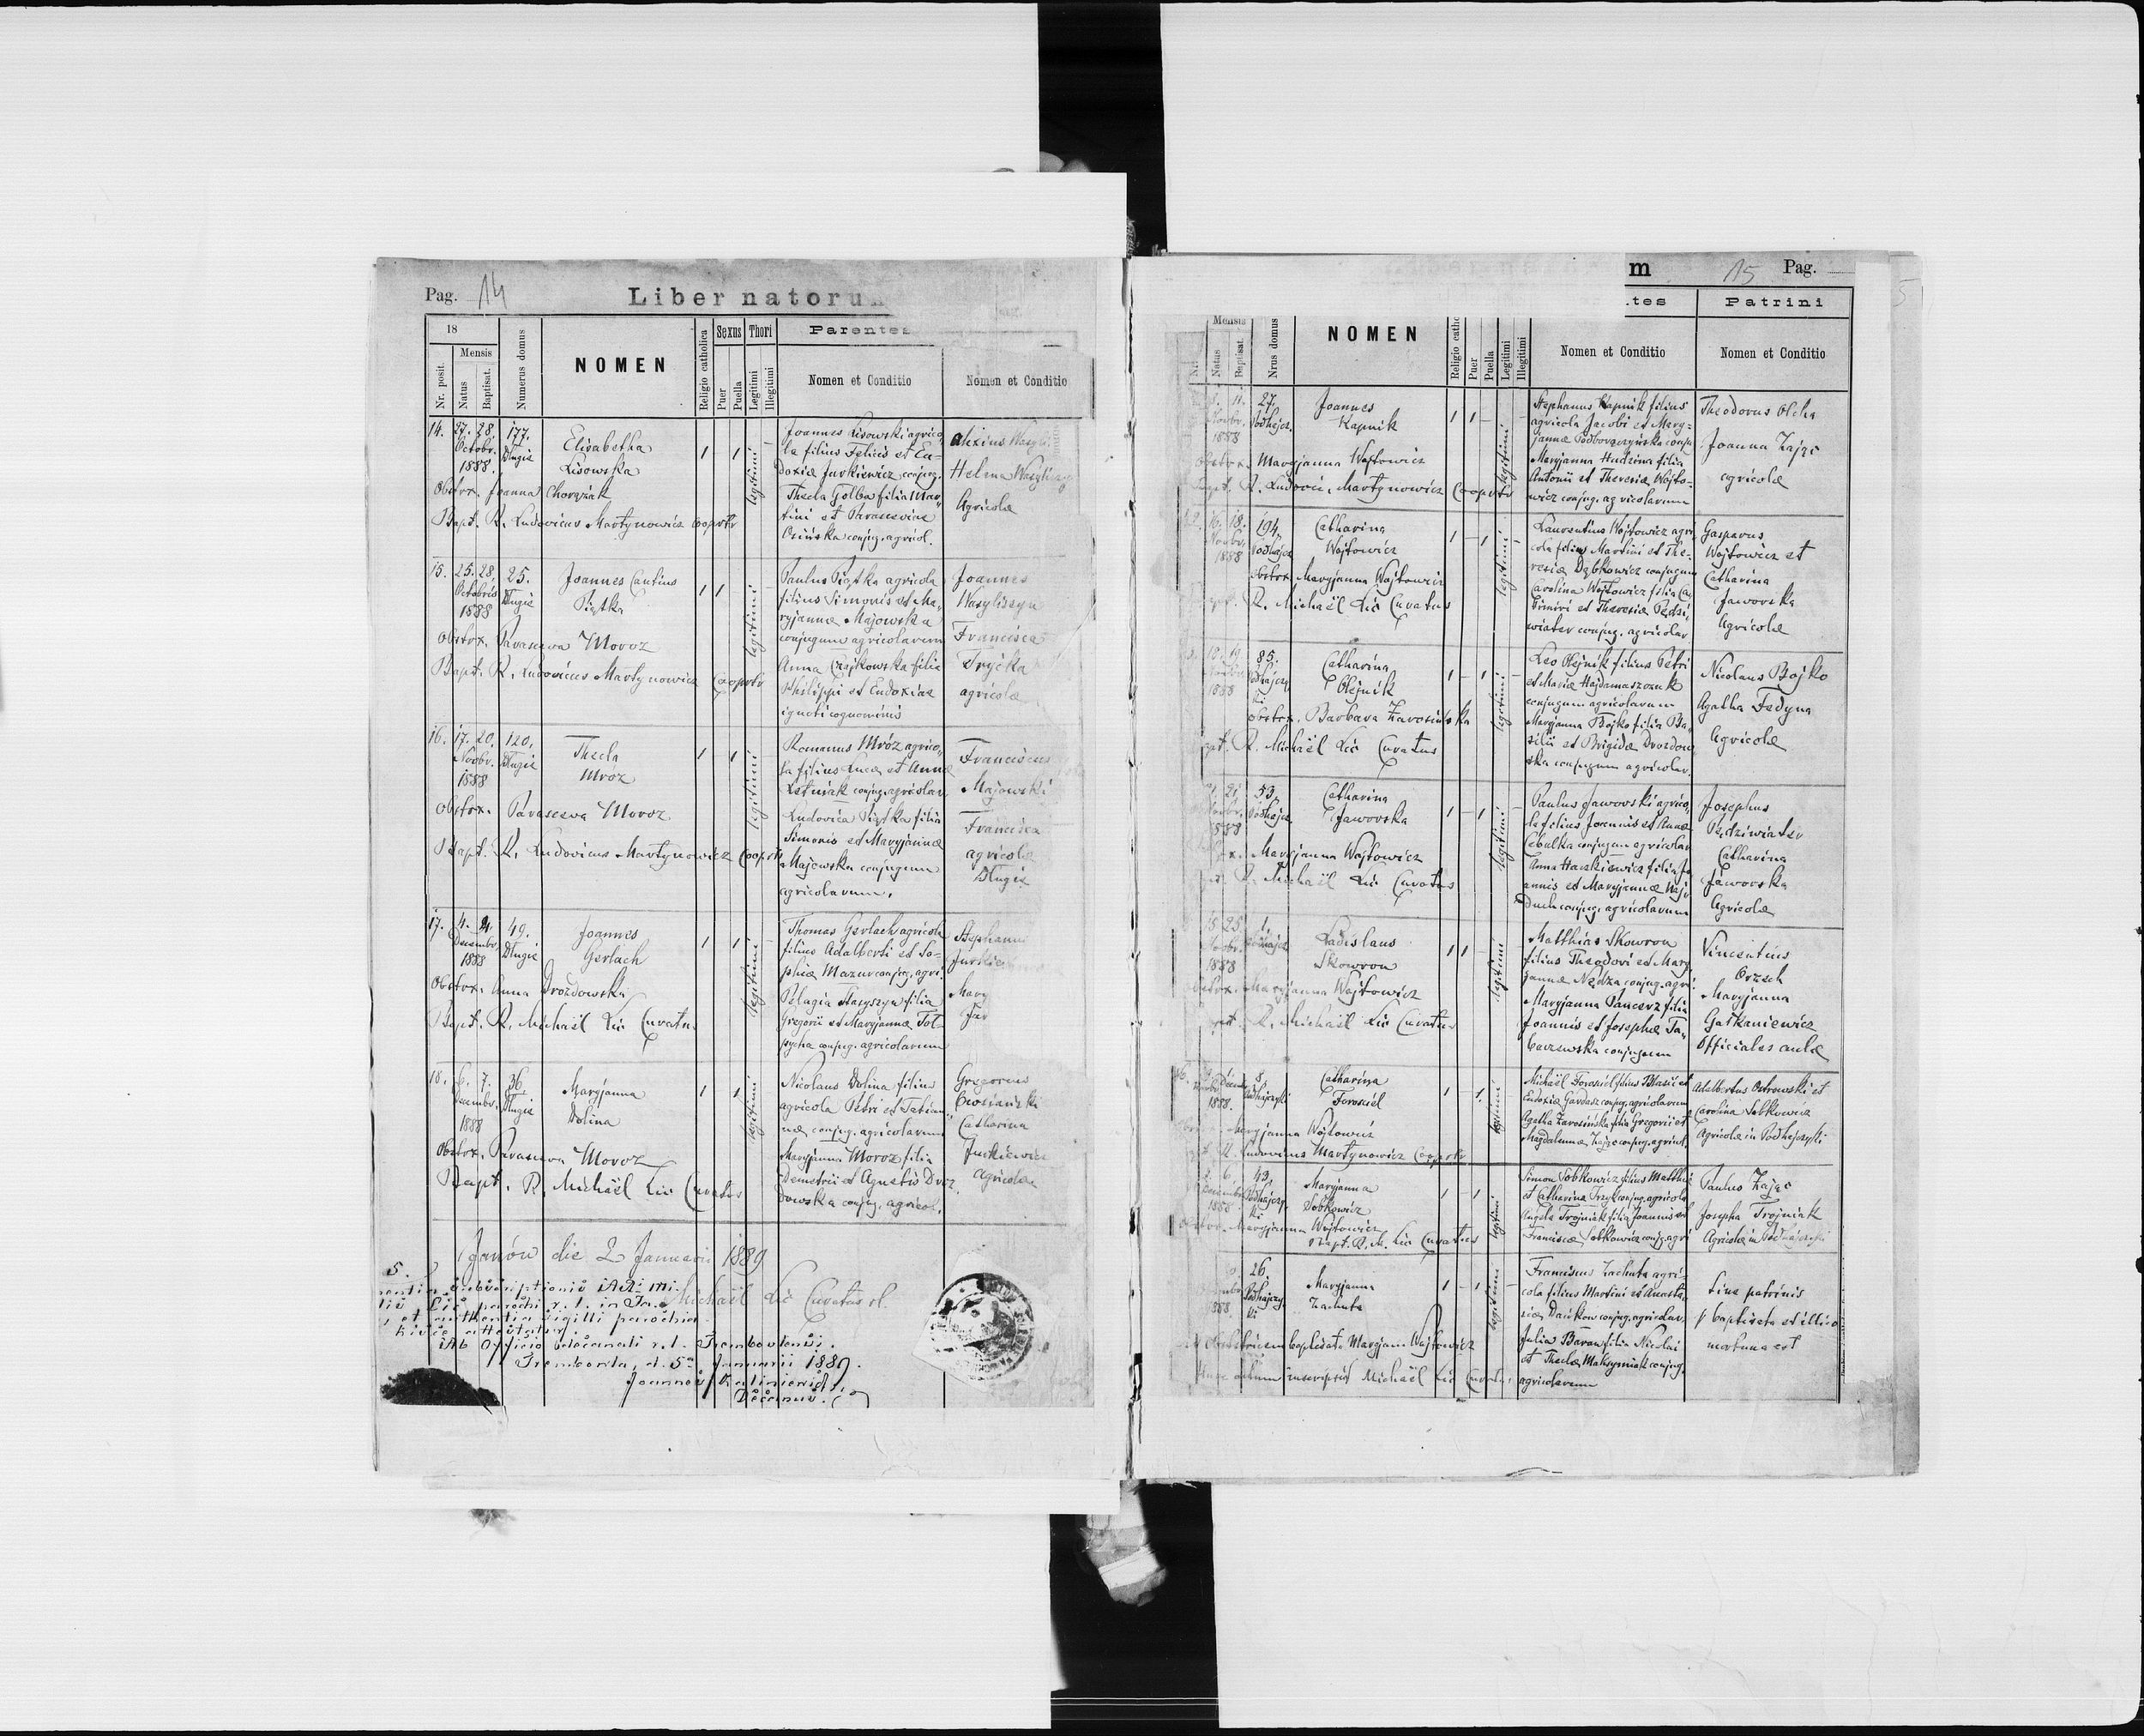 Pag. 14
Liber natorum
18
Nr. posit.
Mensis
Natus
Baptisat.
Numerus domus
NOMEN
Religio catholica
Sexus
Puer
Puella
Thori
Legitimi
Illegitimi
Parentes
Nomen et Conditio
Nomen et Conditio
14. 27. 28. 177.
Octobr. Długie
1888.
Elisabetha
Lisowska
legitimi
Joannes Lisowski agrico-
la filius Felicis et Eu-
doxiæ Jurkiewicz conjug.
Thecla Gołba filia Mar-
tini et Parasceviæ
Osińska conjug. agricol.
Alexius
Helena
Agricolæ
Obstrx. Joanna Chorążak
Bapt. R. Ludovicus Martynowicz Cooprtr
15. 25. 28. 25.
Octobris Długie
1888
Joannes Cantius
Piątka
legitimi
Paulus Piątka agricola
filius Simonis et Ma-
ryjannæ Majowska
conjugum agricolarum
Anna Czajkowska filia
Philippi et Eudoxiæ
ignoti cognominis
Joannes
Wasyliszyn
Francisca
agricolæ
Obstrx. Parascewa Moroz
Bapt. R. Ludovicus Martynowicz Cooprtr
16. 17. 20. 120.
Novbr. Długie
1888
Thecla
Mróz
legitimi
Romanus Mróz agrico-
la filius Lucæ et Annæ
conjug. agricolar.
Ludovica Piątka filia
Simonis et Maryjannæ
Majewska conjugum
agricolarum.
Franciscus
Majowski
Francisca
agricolæ
Długie
Obstrx. Parascewa Moroz
Bapt. R. Ludovicus Martynowicz Cooprtr
17. 4. 9. 49.
Decembr. Długie
1888
Joannes
Gerlach
legitimi
Thomas Gerlach agricola
filius Adalberti et So-
phiæ Mazur conjug. agri
Pelagia Haryszyn filia
Gregorii et Maryjannæ Toł-
pycha conjug. agricolarum
Stephanus
Mary
Obstrx. Anna Drozdowska
Bapt. R. Michaël Lic Curatus
18. 6. 7. 36
Decembr. Długie
1888
Maryjanna
Dolina
legitimi
Nicolaus Dolina filius
agricola Petri et Tatian-
næ conjug. agricolarum
Maryjanna Moroz filia
Demetrii et Agnetis Droz
dowska conjug. agricol.
Gregorius
Catharina
Jurkiewicz
agricolæ
Obstrx. Parascewa Moroz
Bapt. R. Michaël Lic Curatus
Janów die 2 Januarii 1889
Michaël Lic Curatus
5.
subscriptionis
Lic parochi r. l. in Ja.
et authentia sigilli parochia-
Ab Officio decanali r. l. Trembovlensi.
Trembovla, d. 5ª Januarii 1889.
Joannes
Decanus.
m
15 Pag.
Parentes
Patrini
Mensis
Natus
Baptisat.
Nrus domus
NOMEN
Religio catho
Puer
Puella
Legitimi
Illegitimi
Nomen et Conditio
Nomen et Conditio
8. 11. 27.
Novbr. Podhajcz.
1888
Joannes
Kapnik
legitimi
Stephanus Kapnik filius
agricola Jacobi et Mary-
jannæ conju
Maryjanna Hudzina filia
Antonii et Theresiæ Wojto-
wicz conjug. agricolarum
Theodorus Olcha
Joanna Zając
agricolæ
Obstrx. Maryjanna Wojtowicz
Bapt. R. Ludovic. Martynowicz Cooprtr
16. 18. 194.
Novbr. Podhajcz
1888
Catharina
Wojtowicz
legitimi
Laurentius Wojtowicz agri-
cola filius Martini et The-
resiæ Dąbkowicz conjugum
Carolina Wojtowicz filia Ca-
simiri et Theresiæ Pędzi-
wiater conjug. agricolar.
Gasparus
Wojtowicz et
Catharina
Jaworska
Agricolæ
Obstrx. Maryjanna Wojtowicz
R. Michaël Lic Curatus
19. 85.
1888
Catharina
Olejnik
legitimi
Leo Olejnik filius Petri
et Mariæ Hajdamaszczuk
conjugum agricolarum
Maryjanna Bojko filia Ba-
silii et Brigidæ Drozdow-
ska conjugum agricolar.
Nicolaus Bojko
Agatha Fedyna
Agricolæ
Obstrx. Barbara Zarosińska
Bapt. R. Michaël Lic Curatus
21. 53.
Podhajcz.
1888
Catharina
Jaworska
legitimi
Paulus Jaworski agrico-
la filius Joannis et Annæ
Cebulka conjugum agricolar.
Anna Haszkiewicz filia Jo-
annis et Maryjannæ Woj-
conjug. agricolarum
Josephus
Pędziwiater
Catharina
Jaworska
Agricolæ
Maryjanna Wojtowicz
R. Michaël Lic Curatus
25. 1.
Novbr.
1888
Ladislaus
Skowron
legitimi
Matthias Skowron
filius Theodori et Mary-
jannæ Nędza conjug. agri
Maryjanna Pancerz filia
Joannis et Josephæ Ta-
conjugum
Vincentius
Orzech
Maryjanna
Gatkaniewicz
Officiales aulæ
Obstrx. Maryjanna Wojtowicz
R. Michaël Lic Curatus
8.
1888.
Catharina
legitimi
Michaël filius Blasii et
Eudoxiæ Gardasz conjug. agricolarum
Agatha Zarosińska filia Gregorii et
Magdalenæ Zając conjug. agricol.
Adalbertus Ostrowski et
Carolina Sobkowicz
Agricolæ in Podhajczyki
Maryjanna Wojtowicz
R. Ludovicus Martynowicz Cooprtr
6. 43.
1888
Maryjanna
Sobkowicz
legitimi
Simon Sobkowicz filius Matthi
et Catharinæ conjug. agricola
Angela Trojniak filia Joannis et
Franciscæ Sobkowicz conjug. agri
Paulus Zając
Josepha Trojniak
Agricolæ in Podhajczyki
Obstrx. Maryjanna Wojtowicz
Bapt. R. M. Lic Curatus
26.
1888
Maryjanna
Zachuta
legitimi
Franciscus Zachuta agri-
cola filius Martini et Anasta-
siæ conjug. agricolar.
Julia Baran filia Nicolai
et Theclæ Maksymiak conjug.
agricolarum
Sine patrinis
baptisata et illico
mortua est
Ab Obstetricem baptisata Maryjann. Wojtowicz
Hunc actum inscripsit Michaël Lic Curatus